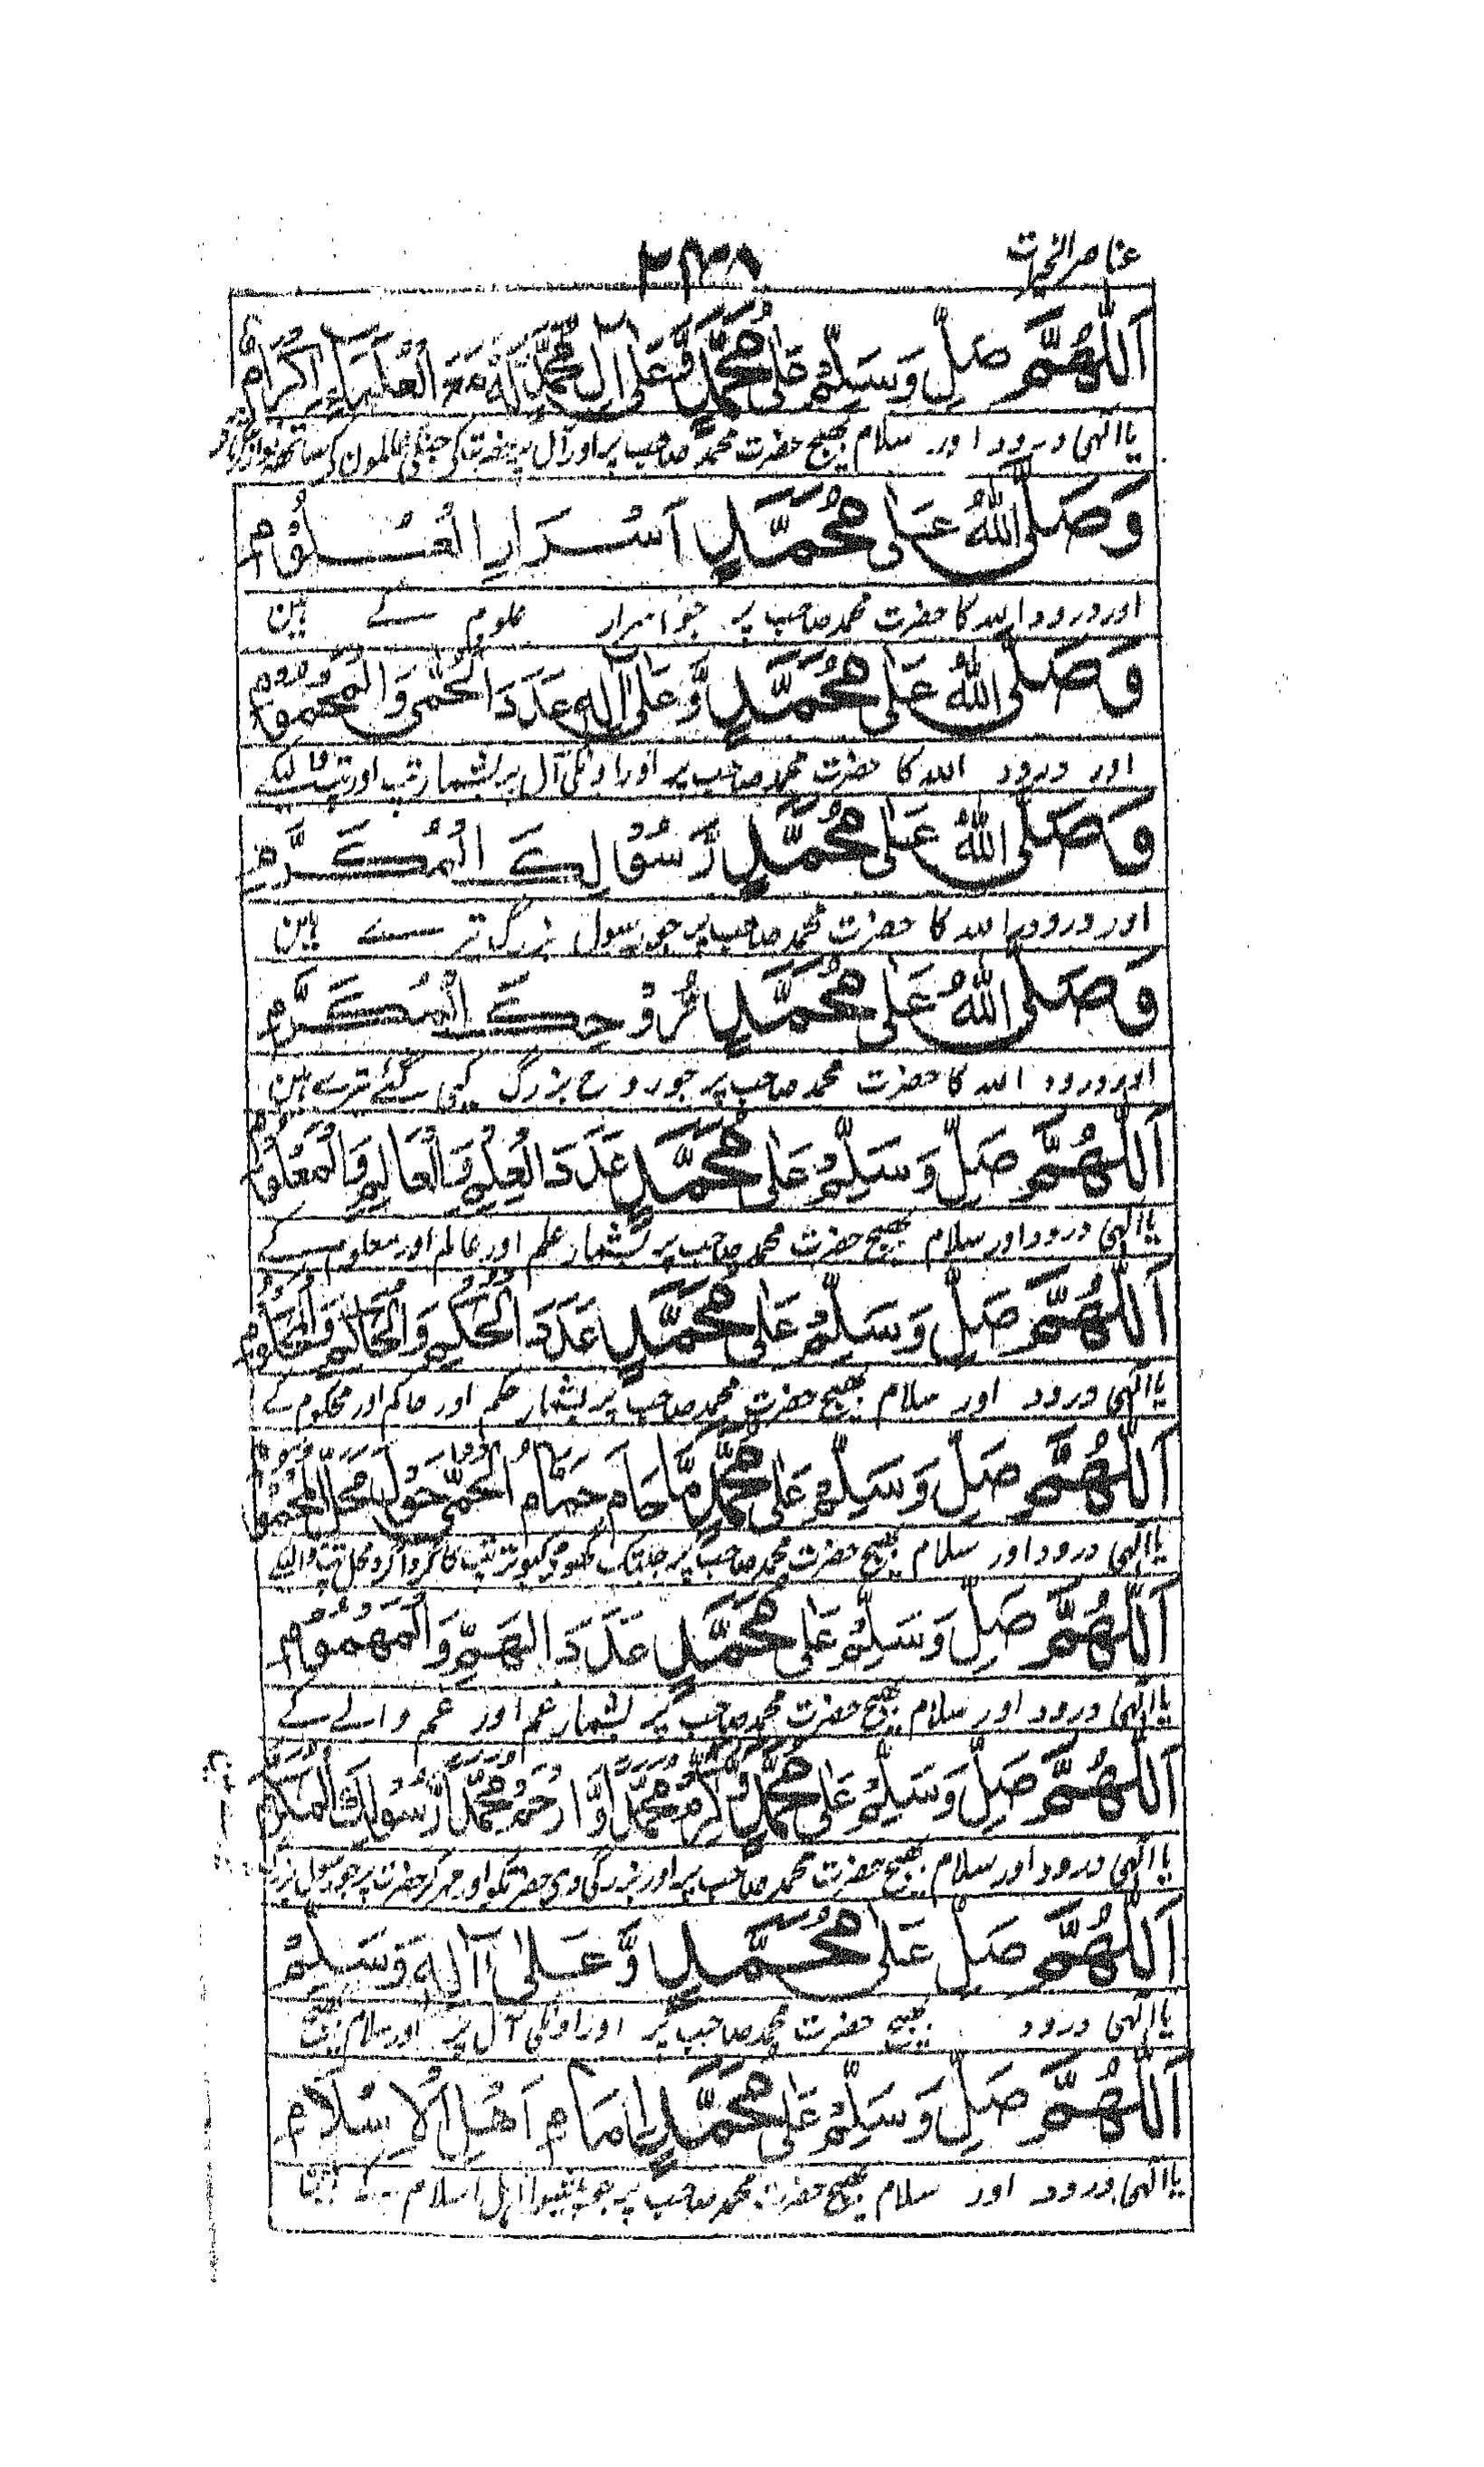 عناصر الخیرات
۲۳۸
اَللّٰهُمَّ صَلِّ وَسَلِّمْ عَلٰی مُحَمَّدٍ وَّعَلٰی اٰلِ مُحَمَّدٍ لَهٗ مَعَ الْعُلَمَاءِ اِکْرَامٌ
یا الٰہی درود اور سلام بھیج حضرت محمد صاحب پر اور آل پر حضرت کی جنکی عالمون کے ساتھ
وَصَلَّی اللّٰهُ عَلٰی مُحَمَّدٍ اَسْرَارِ الْعُلُوْمِ
اور درود اللہ کا حضرت محمد صاحب پر جو اسرار علوم کے ہین
وَصَلَّی اللّٰهُ عَلٰی مُحَمَّدٍ وَّعَلٰی اٰلِهٖ عَدَدَ الْحُمّٰی وَالْمَحْمُوْمِ
اور درود اللہ کا حضرت محمد صاحب پر اور اونکی آل پر بشمار تپ اور تپ والیکے
وَصَلَّی اللّٰهُ عَلٰی مُحَمَّدٍ رَّسُوْلِكَ الْمُكَرَّمِ
اور درود اللہ کا حضرت محمد صاحب پر جو رسول بزرگ تیرے ہین
وَصَلَّی اللّٰهُ عَلٰی مُحَمَّدٍ رُّوْحِكَ الْمُكَرَّمِ
اور درود اللہ کا حضرت محمد صاحب پر جو روح بزرگ کئی گئے تیرے ہین
اَللّٰهُمَّ صَلِّ وَسَلِّمْ عَلٰی مُحَمَّدٍ عَدَدَ الْعِلْمِ وَالْعَالِمِ وَالْمَعْلُوْمِ
یا الٰہی درود اور سلام بھیج حضرت محمد صاحب پر بشمار علم اور عالم اور معلوم کے
اَللّٰهُمَّ صَلِّ وَسَلِّمْ عَلٰی مُحَمَّدٍ عَدَدَ الْحُكْمِ وَالْحَاكِمِ وَالْمَحْكُوْمِ
یا الٰہی درود اور سلام بھیج حضرت محمد صاحب پر بشمار حکم اور حاکم اور محکوم کے
اَللّٰهُمَّ صَلِّ وَسَلِّمْ عَلٰی مُحَمَّدٍ مَّا حَامَ حَمَامُ الْحُمّٰی حَوْلَ مَحَلِّ الْمَحْمُوْمِ
یا الٰہی درود اور سلام بھیج حضرت محمد صاحب پر جبتک گھومے کبوتر تپ کا گردا گرد محل تپ والیکے
اَللّٰهُمَّ صَلِّ وَسَلِّمْ عَلٰی مُحَمَّدٍ عَدَدَ الْهَمِّ وَالْمَهْمُوْمِ
یا الٰہی درود اور سلام بھیج حضرت محمد صاحب پر بشمار غم اور غم والے کے
اَللّٰهُمَّ صَلِّ وَسَلِّمْ عَلٰی مُحَمَّدٍ وَّاَكْرِمْ مُحَمَّدًا وَّارْحَمْ مُحَمَّدًا رَّسُوْلَكَ الْمُكَرَّمَ
یا الٰہی درود اور سلام بھیج حضرت محمد صاحب پر اور بزرگی دی حضرتکو اور مہر کر حضرت پر جو رسول بزرگ
اَللّٰهُمَّ صَلِّ عَلٰی مُحَمَّدٍ وَّعَلٰی اٰلِهٖ وَسَلِّمْ
یا الٰہی درود بھیج حضرت محمد صاحب پر اور اونکی آل پر اور سلام بھیج
اَللّٰهُمَّ صَلِّ وَسَلِّمْ عَلٰی مُحَمَّدٍ اِمَامِ اَهْلِ الْاِسْلَامِ
یا الٰہی درود اور سلام بھیج حضرت محمد صاحب پر جو پیشوا اہل اسلام کے ہین